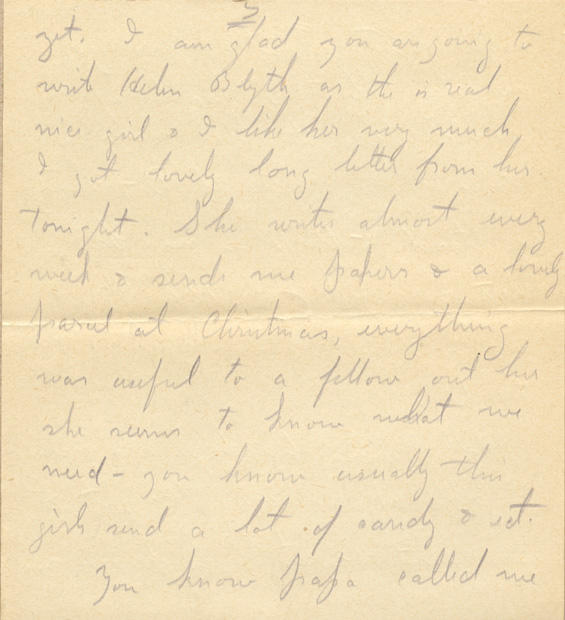 3
yet. I am glad you are going to
write Helen Blyth as she is real
nice girl & I like her very much
I got lovely long letter from her
tonight. She writes almost every
week & sends me papers & a lovely
parcel at Christmas, everything
was useful to a fellow out her
she seems to know what we
need - you know usually the
girls send a lot of candy & ect.
You know papa called me